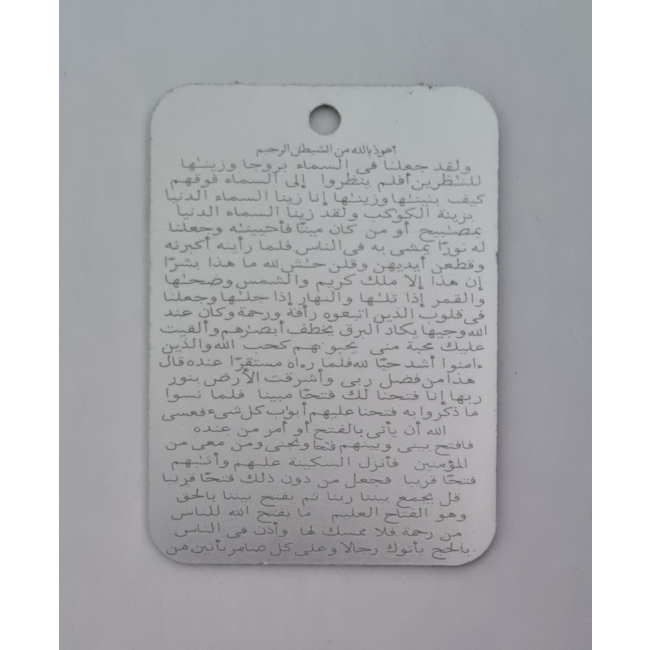 أعوذ بالله من الشيطان الرجيم
ولقد جعلنا فى السماء بروجا وزينـٰها
للنـٰظرين أفلم ينظروا إلى السماء فوقهم
كيف بنينـٰها وزينـٰها إنا زينا السماء الدنيا
بزينة الكوكب ولقد زينا السماء الدنيا
بمصـٰبيح أو من كان ميتا فأحيينـٰه وجعلنا
له نورًا يمشى به فى الناس فلما رأينه أكبرنه
وقطعن أيديهن وقلن حـٰش لله ما هذا بشرًا
إن هذا إلا ملك كريم والشمس وضحـٰها
والقمر إذا تلـٰها والنهار إذا جلـٰها وجعلنا
فى قلوب الذين اتبعوه رأفة ورحمة وكان عند
الله وجيها يكاد البرق يخطف أبصـٰرهم وألقيت
عليك محبة منى يحبونهم كحب الله والذين
ءامنوا أشد حبًا لله فلما رءاه مستقرًا عنده قال
هذا من فضل ربى وأشرقت الأرض بنور
ربها إنا فتحنا لك فتحًا مبينا فلما نسوا
ما ذكروا به فتحنا عليهم أبوٰب كل شىء فعسى
الله أن يأتى بالفتح أو أمر من عنده
فافتح بينى وبينهم فتحًا ونجنى ومن معى من
المؤمنين فأنزل السكينة عليهم وأثـٰبهم
فتحًا قريبا فجعل من دون ذلك فتحًا قريبا
قل يجمع بيننا ربنا ثم يفتح بيننا بالحق
وهو الفتاح العليم ما يفتح الله للناس
من رحمة فلا ممسك لها وأذن فى الناس
بالحج يأتوك رجالا وعلى كل ضامر يأتين من